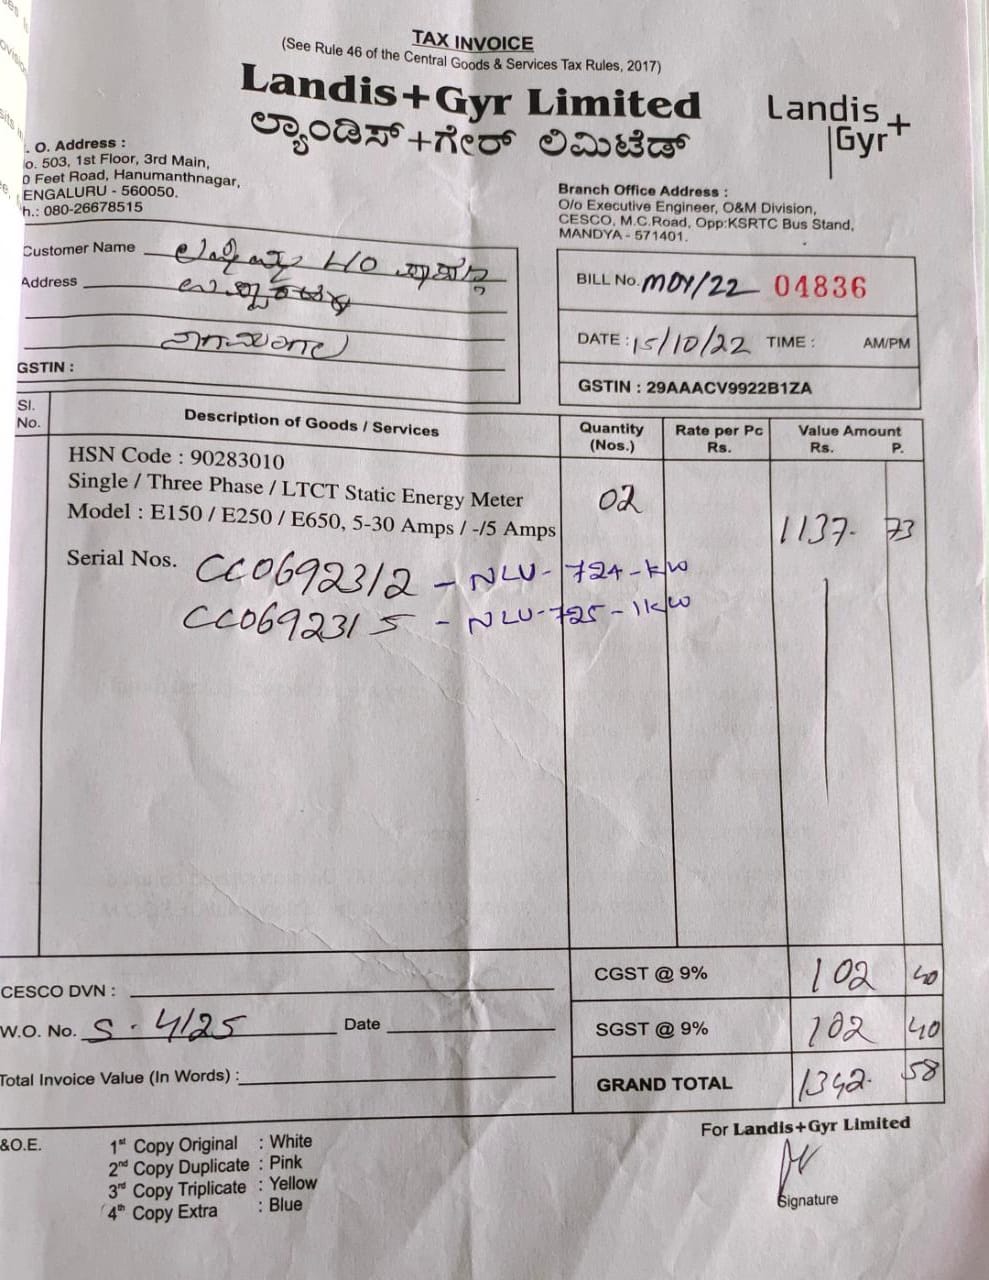 TAX INVOICE
(See Rule 46 of the Central Goods & Services Tax Rules, 2017)
Landis+Gyr Limited
ಲ್ಯಾಂಡಿಸ್+ಗೇರ್ ಲಿಮಿಟೆಡ್
Landis+
Gyr
. O. Address :
o. 503, 1st Floor, 3rd Main,
0 Feet Road, Hanumanthnagar,
ENGALURU - 560050.
h.: 080-26678515
Branch Office Address :
O/o Executive Engineer, O&M Division,
CESCO, M.C.Road, Opp:KSRTC Bus Stand,
MANDYA - 571401.
Customer Name
Address
GSTIN :
BILL No. MDY/22 04836
DATE : 15/10/22 TIME : AM/PM
GSTIN : 29AAACV9922B1ZA
Sl. No. Description of Goods / Services Quantity (Nos.) Rate per Pc Rs. Value Amount Rs. P.
HSN Code : 90283010
Single / Three Phase / LTCT Static Energy Meter 02
Model : E150 / E250 / E650, 5-30 Amps / -/5 Amps 1137. 73
Serial Nos. CC0692312 - NLU - 724 - KW
CC0692315 - NLU-725 - 1KW
CGST @ 9% 102 40
CESCO DVN :
SGST @ 9% 102 40
W.O. No. S - 4125 Date
GRAND TOTAL 1342. 58
Total Invoice Value (In Words) :
For Landis+Gyr Limited
&O.E.
1st Copy Original : White
2nd Copy Duplicate : Pink
3rd Copy Triplicate : Yellow
4th Copy Extra : Blue
Signature